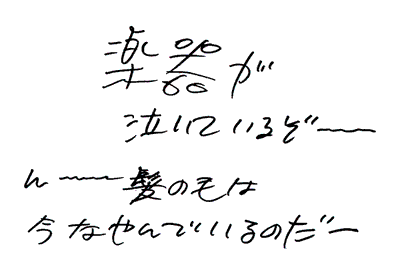 楽器が
泣いているぞ〜〜
ん〜〜髪の毛は
今なやんでいるのだー